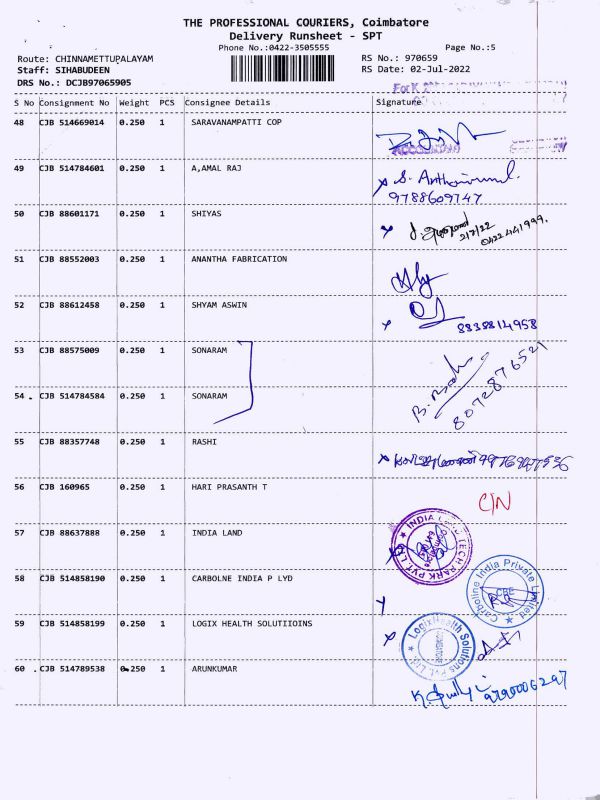 THE PROFESSIONAL COURIERS, Coimbatore
Delivery Runsheet - SPT
Phone No.:0422-3505555 Page No.:5
Route: CHINNAMETTUPALAYAM RS No.: 970659
Staff: SIHABUDEEN RS Date: 02-Jul-2022
DRS No.: DCJB97065905
For K
S No Consignment No Weight PCS Consignee Details Signature
48 CJB 514669014 0.250 1 SARAVANAMPATTI COP
49 CJB 514784601 0.250 1 A,AMAL RAJ
9788609747
50 CJB 88601171 0.250 1 SHIYAS
2/7/22
0422 441999.
51 CJB 88552003 0.250 1 ANANTHA FABRICATION
52 CJB 88612458 0.250 1 SHYAM ASWIN
8838814958
53 CJB 88575009 0.250 1 SONARAM
8072876521
54 . CJB 514784584 0.250 1 SONARAM
55 CJB 88357748 0.250 1 RASHI
56 CJB 160965 0.250 1 HARI PRASANTH T
C/N
57 CJB 88637888 0.250 1 INDIA LAND
INDIA LAND TECH PARK PVT. LTD
58 CJB 514858190 0.250 1 CARBOLNE INDIA P LYD
Carboline India Private Limited
CBE
59 CJB 514858199 0.250 1 LOGIX HEALTH SOLUTIIOINS
LogixHealth Solutions Pvt. Ltd.
COIMBATORE
60 . CJB 514789538 0.250 1 ARUNKUMAR